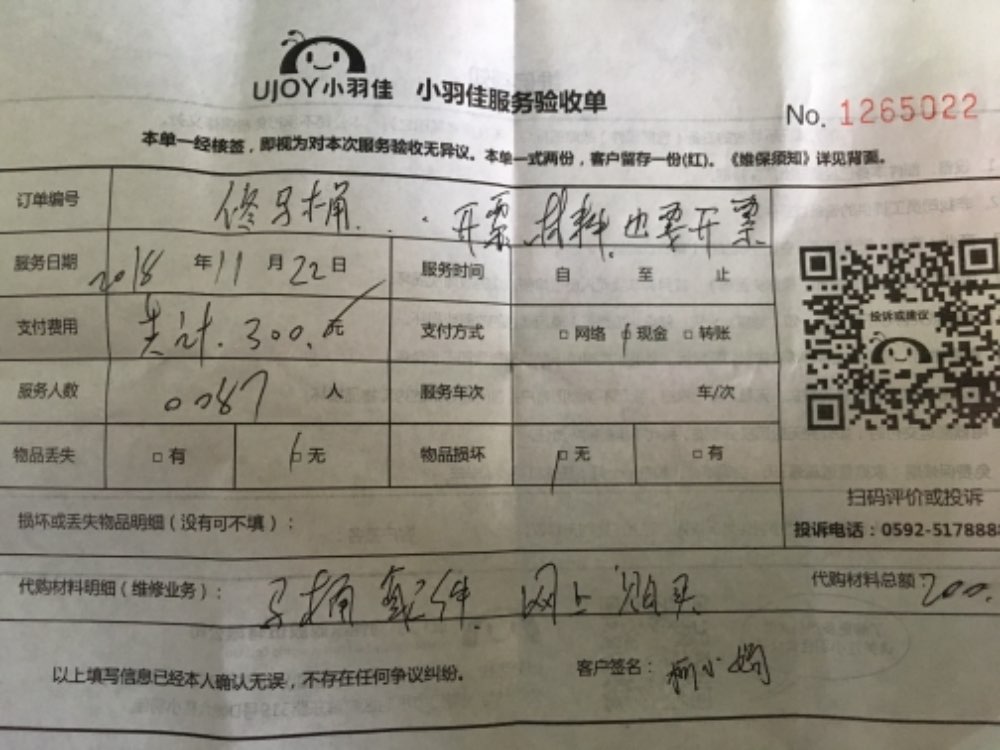 UJOY小羽佳 小羽佳服务验收单
No. 1265022
本单一经核签，即视为对本次服务验收无异议。本单一式两份，客户留存一份(红)。《维保须知》详见背面。
订单编号 修马桶. 开票 材料也要开票
服务日期 2018年11月22日 服务时间 自 至 止
支付费用 共计.300.元 支付方式 □网络 □现金 □转账
投诉或建议
服务人数 0087 人 服务车次 车/次
物品丢失 □有 □无 物品损坏 □无 □有
扫码评价或投诉
损坏或丢失物品明细（没有可不填）：
投诉电话：0592-5178888
代购材料明细（维修业务）： 马桶配件 网上购买 代购材料总额：200.
以上填写信息已经本人确认无误，不存在任何争议纠纷。 客户签名：